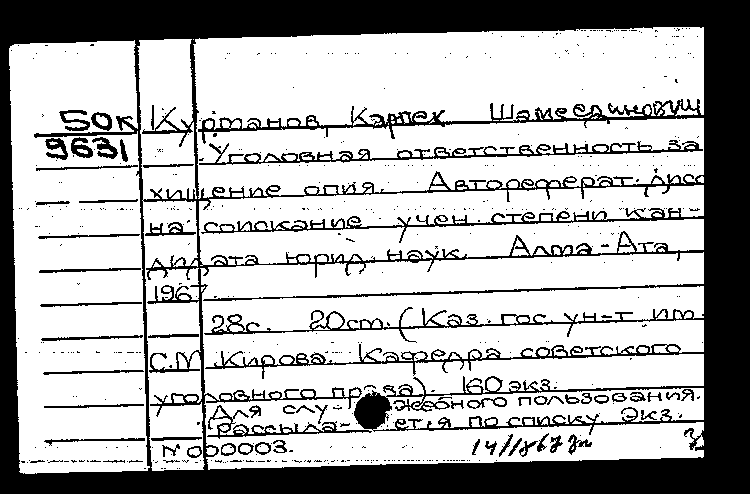 50к Курманов, Карпек Шамсединович
9631 Уголовная ответственность за
хищение опия. Автореферат дисс
на соискание учен. степени кан-
дидата юрид. наук. Алма-Ата,
1967.
28с. 20cm. (Каз. гос. ун-т им.
С.М. Кирова. Кафедра советского
уголовного права). 160 экз.
Для слу- жебного пользования.
Рассыла- ется по списку. Экз.
№ 000003.